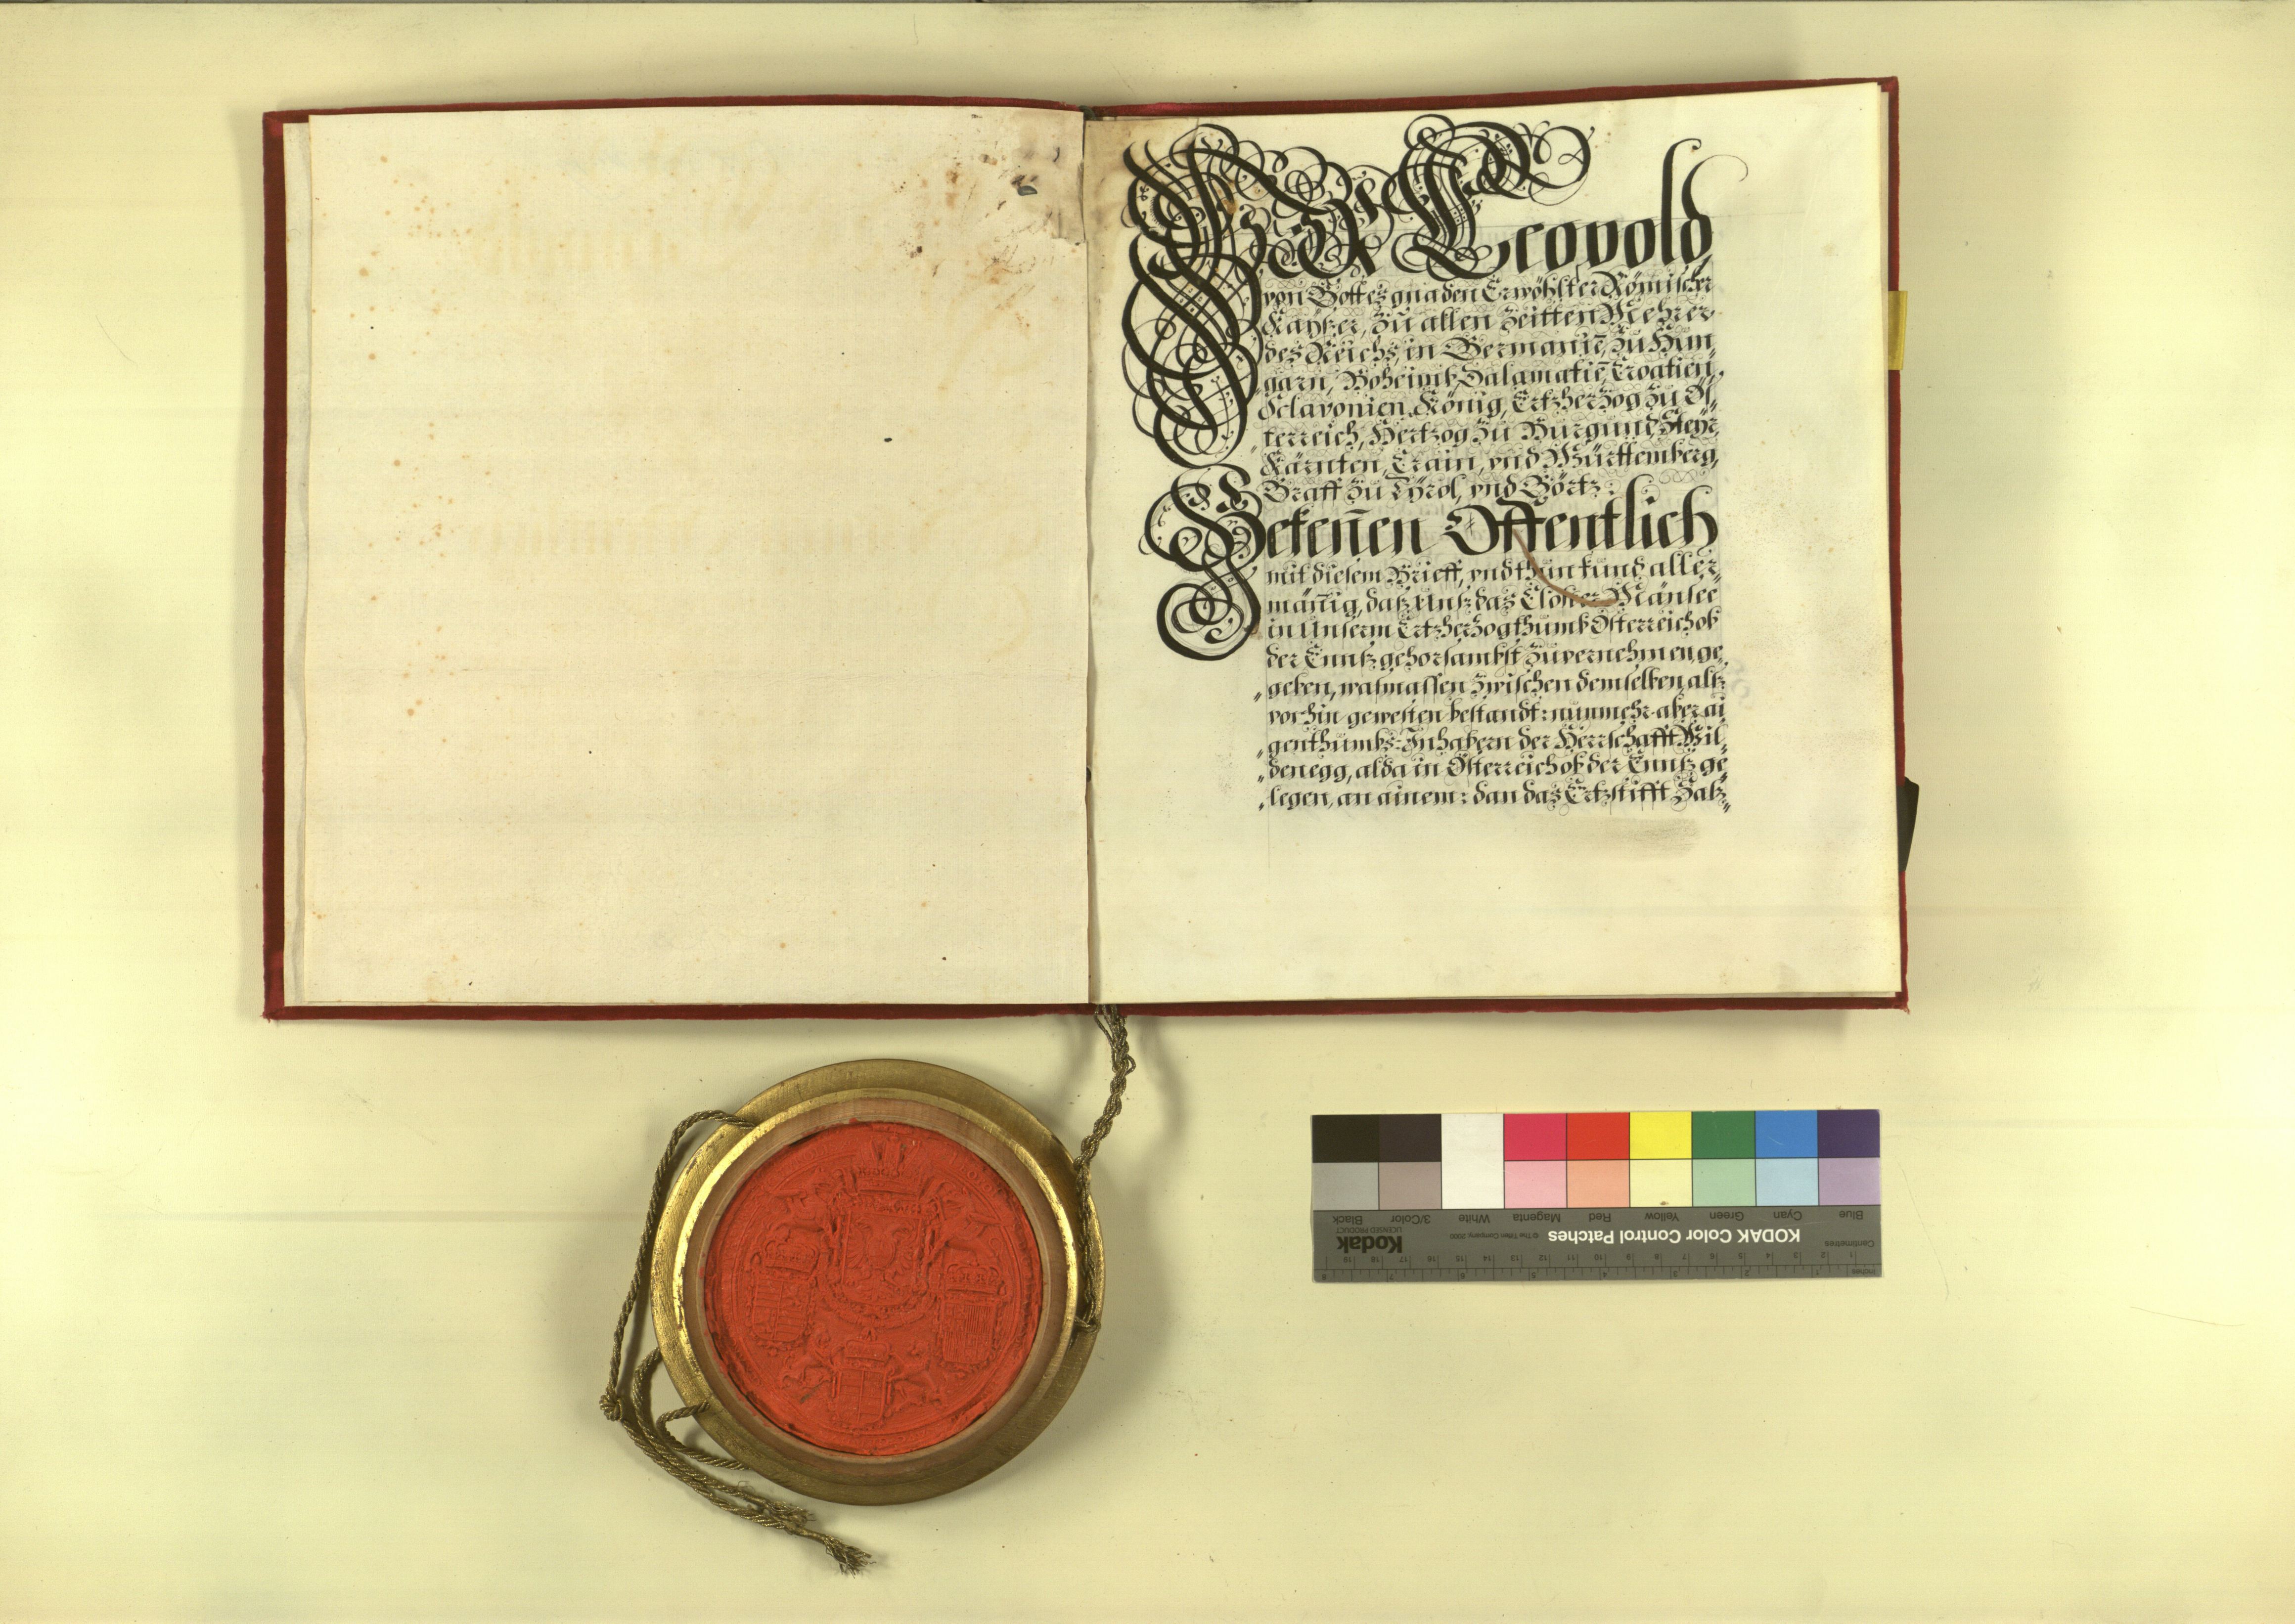 Wir Leopold
von Gottes gnaden Erwöhlter Römischer
Kayßer, zu allen Zeitten Mehrer
des Reichs, in Germanie, zu Hun„
garn, Boheimb, Dalamatiē, Croatien,
Sclavonien, König, Ertzherzog zu Ös„
„terreich, Hertzog zu Burgund, Steyr,
Kärnten, Crain, vnd Württemberg,
Graff zu Tyrol, vnd Görtz.
Bekeñen Offentlich
mit diesem Brieff, vnd thun kund aller„
mäñig, daß Unß daz Closter Mänsee
in Unserm Ertzherzogthumb Österreich ob
der Ennß gehorsambst zuvernehmen ge„
„geben, wasmassen zwischen demselben alß
vorhin gewesten bestandt: nunmehr aber ai
„genthumbs-Inhabern der Herrschafft Wil„
„denegg, alda in Österreich ob der Ennß ge
„legen, an ainem: dan daz Ertzstifft Salz„
Blue
Cyan
Green
Yellow
Red
Magenta
White
3/Color
Black
KODAK Color Control Patches
© The Tiffen Company, 2000
Kodak
LICENSED PRODUCT
Centimetres
1 2 3 4 5 6 7 8 9 10 11 12 13 14 15 16 17 18 19
Inches
1 2 3 4 5 6 7 8